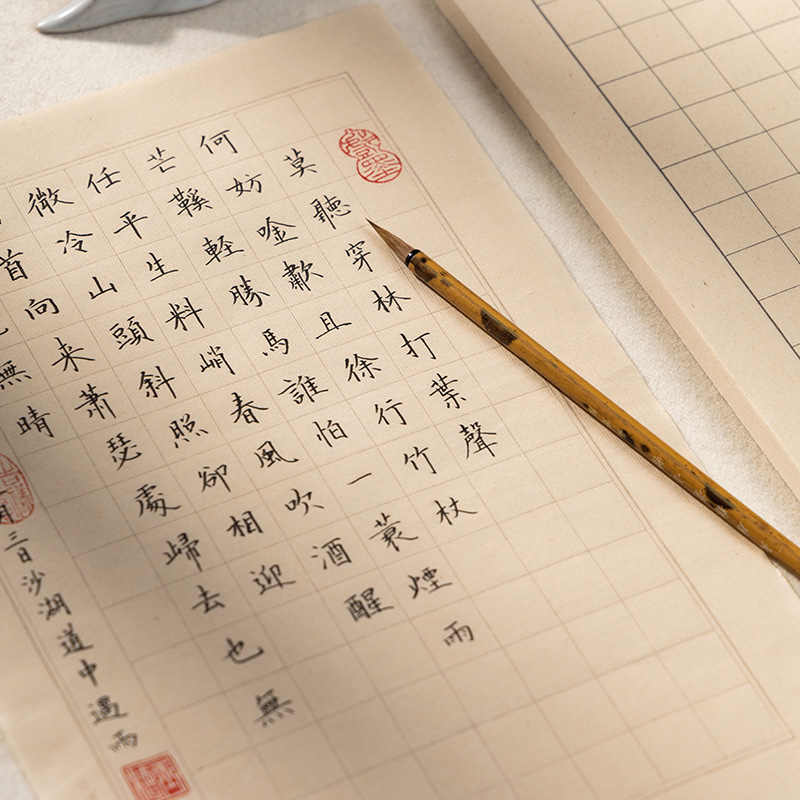 莫聽穿林打葉聲
何妨唫歗且徐行竹杖
芒鞵軽勝馬誰怕一蓑煙雨
任平生料峭春風吹酒醒
微冷山頭斜照卻相迎
首向来蕭瑟處歸去也無
無晴
月三日沙湖道中遇雨